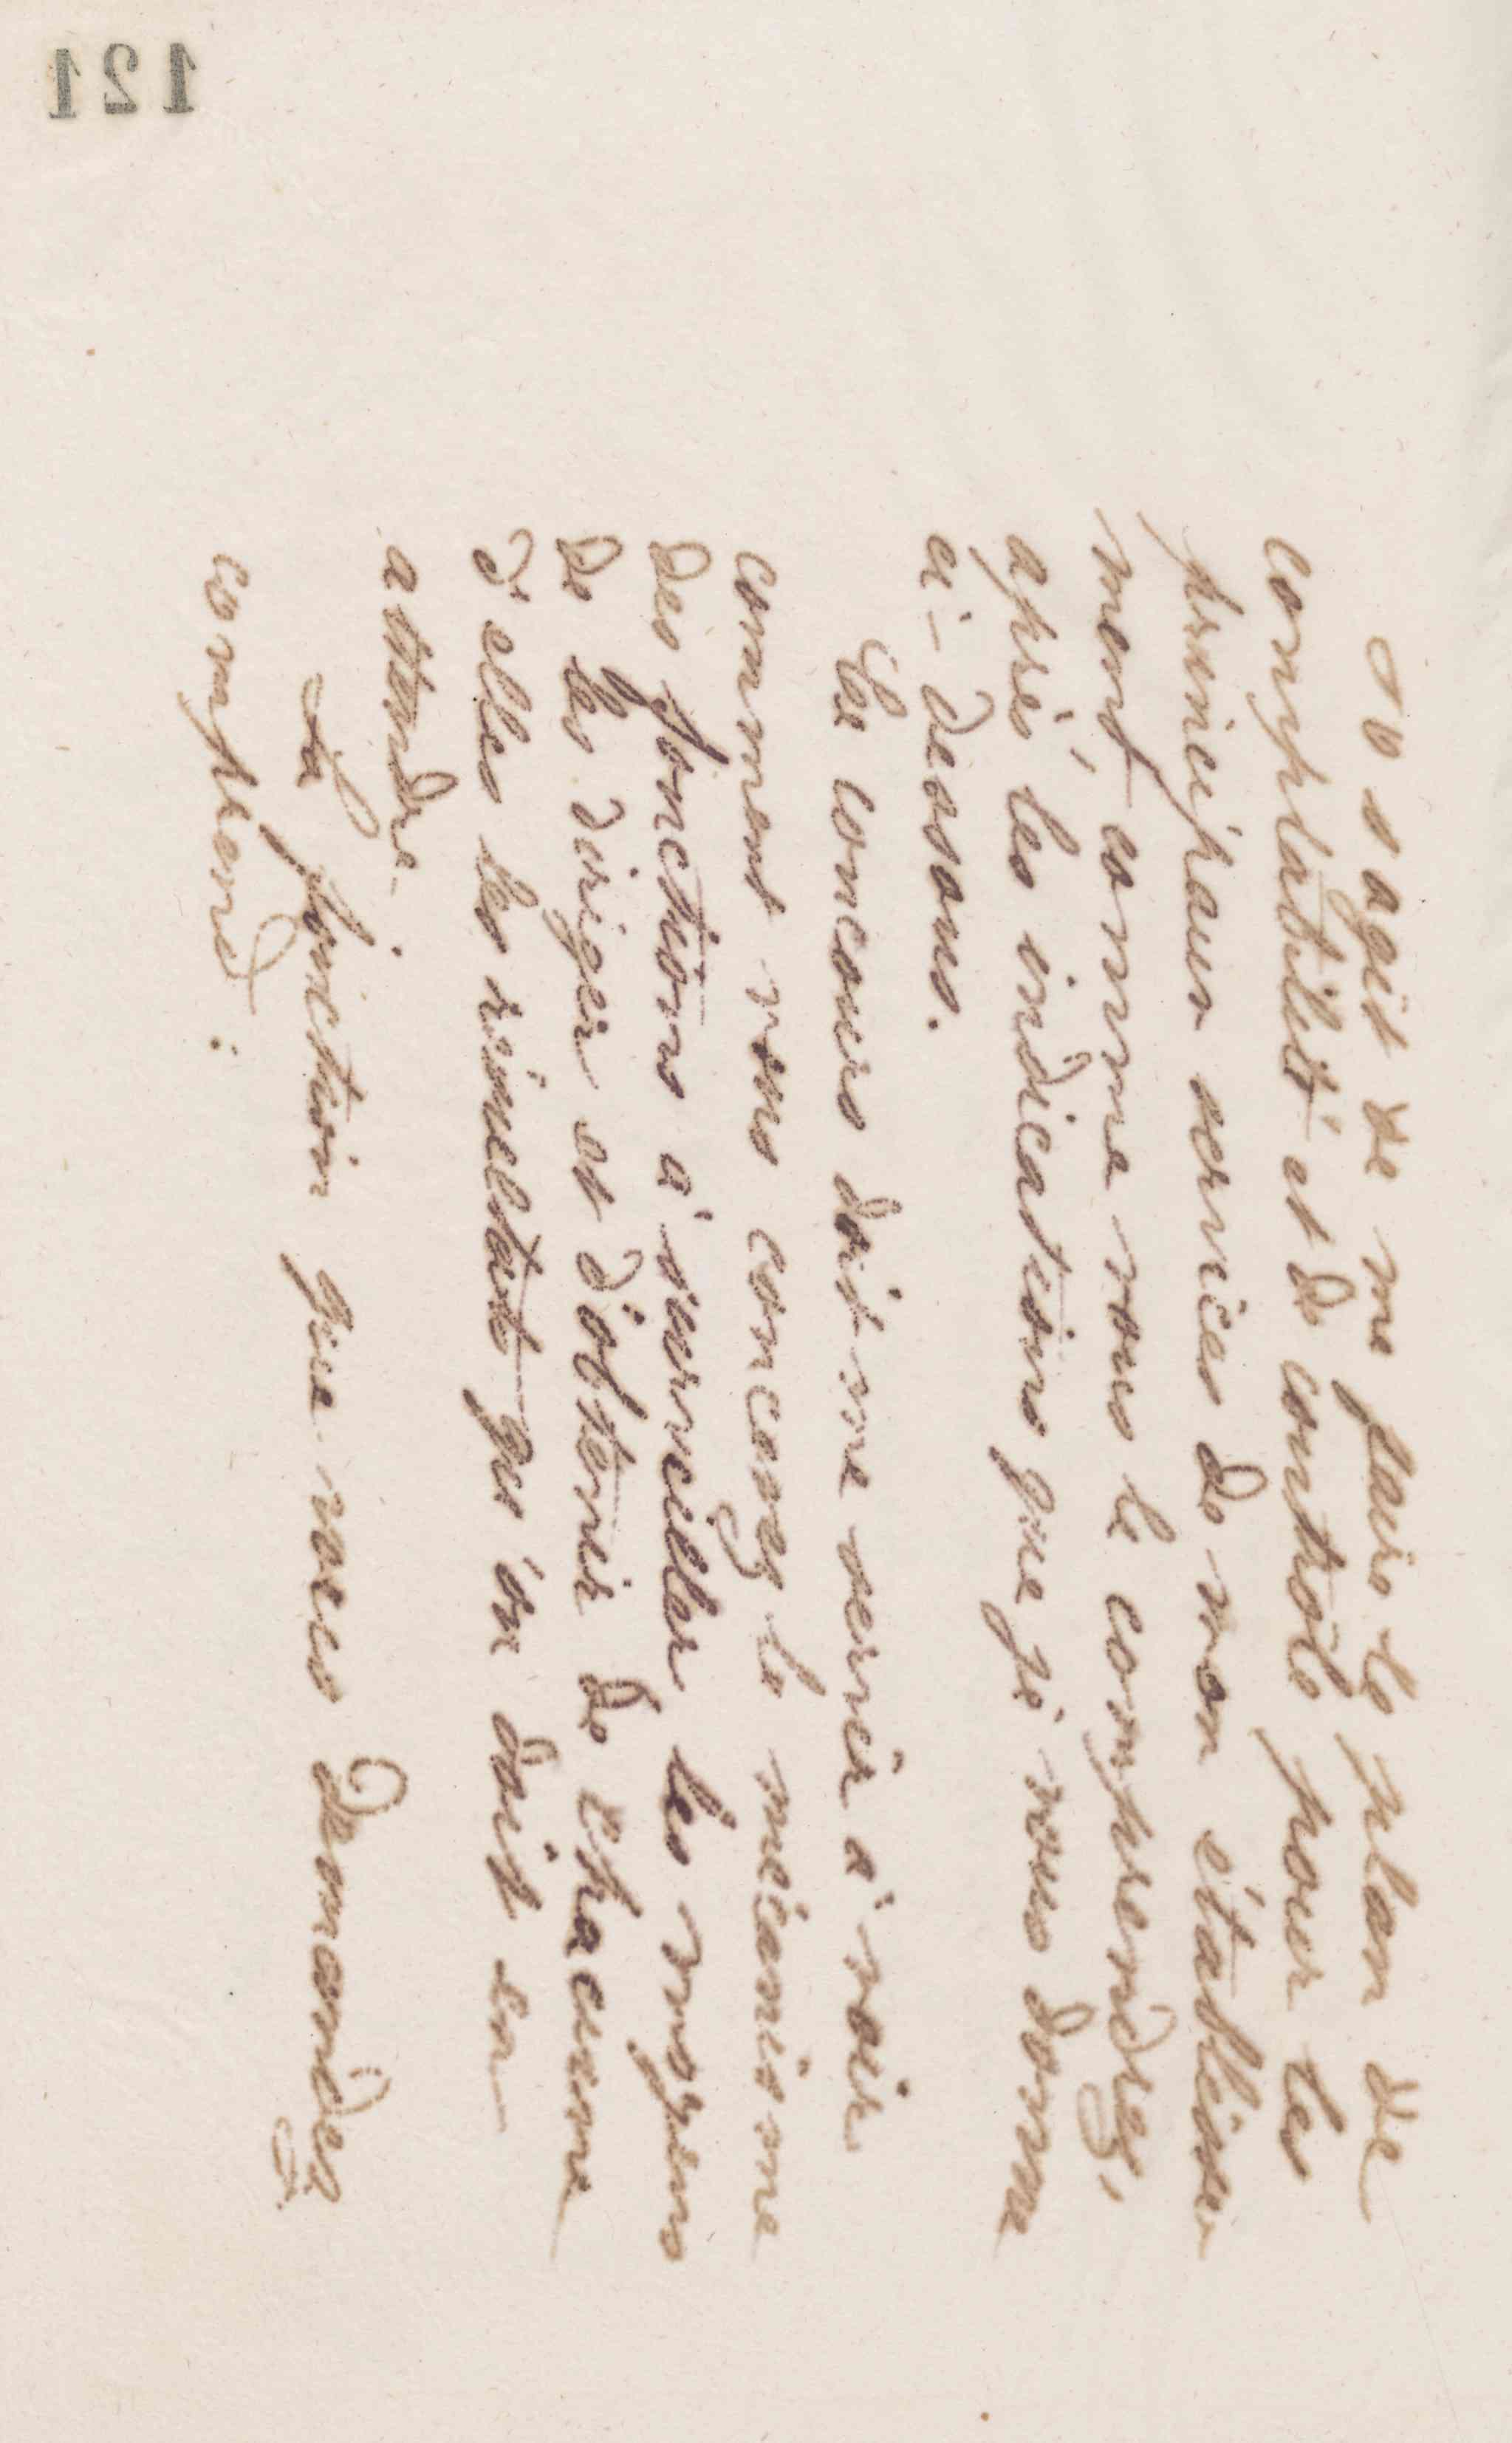 Il s'agit de me faire le plan de
comptabilité et de contrôle pour les
principaux services de mon établisse-
ment, comme vous le comprendrez,
après les indications que je vous donne
ci-dessous.
Ce concours doit me servir à voir
comment vous concevez le mécanisme
des fonctions à surveiller les moyens
de les diriger et d'obtenir de chacune
d'elles les résultats qu'on doit en
attendre.
La fonction que vous demandez
comprend :
121